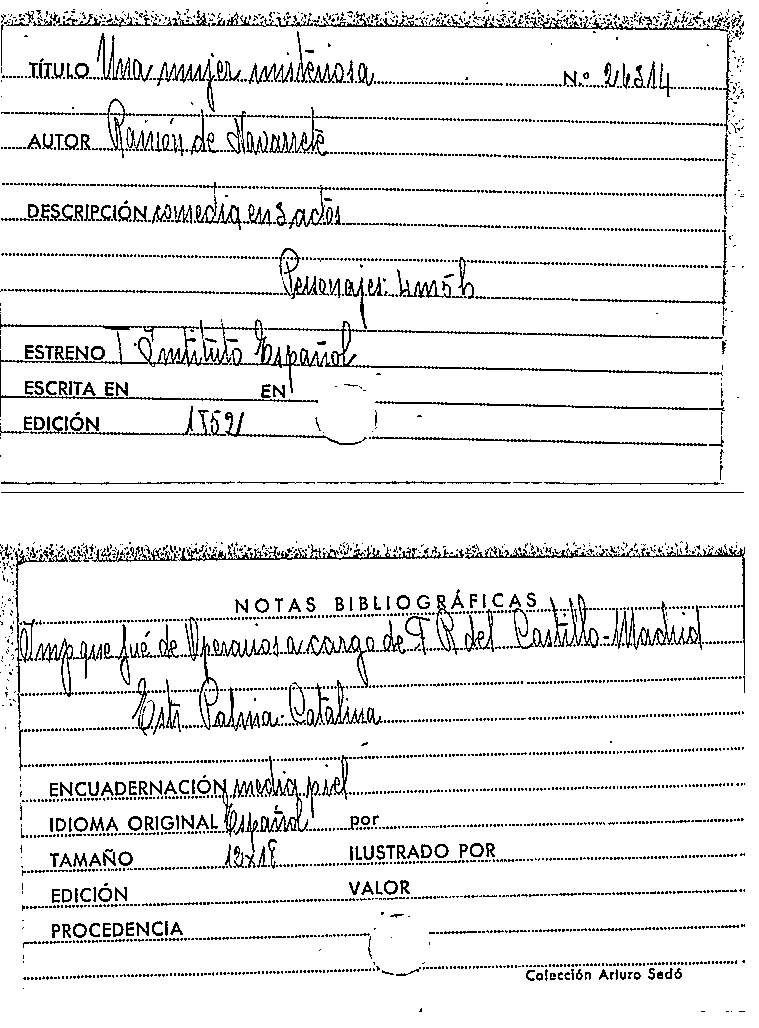 TÍTULO Una mujer misteriosa N.º 26314
AUTOR Ramón de Navarrete
DESCRIPCIÓN comedia en 3 actos
Personajes: 4m5h
ESTRENO T. Instituto Español
ESCRITA EN EN
EDICIÓN 1852
NOTAS BIBLIOGRÁFICAS
Imp que fué de Operarios a cargo de F R del Castillo-Madrid
Estr Palma-Catalina
ENCUADERNACIÓN media piel
IDIOMA ORIGINAL Español por
TAMAÑO 12x18 ILUSTRADO POR
EDICIÓN VALOR
PROCEDENCIA
Colección Arturo Sedó